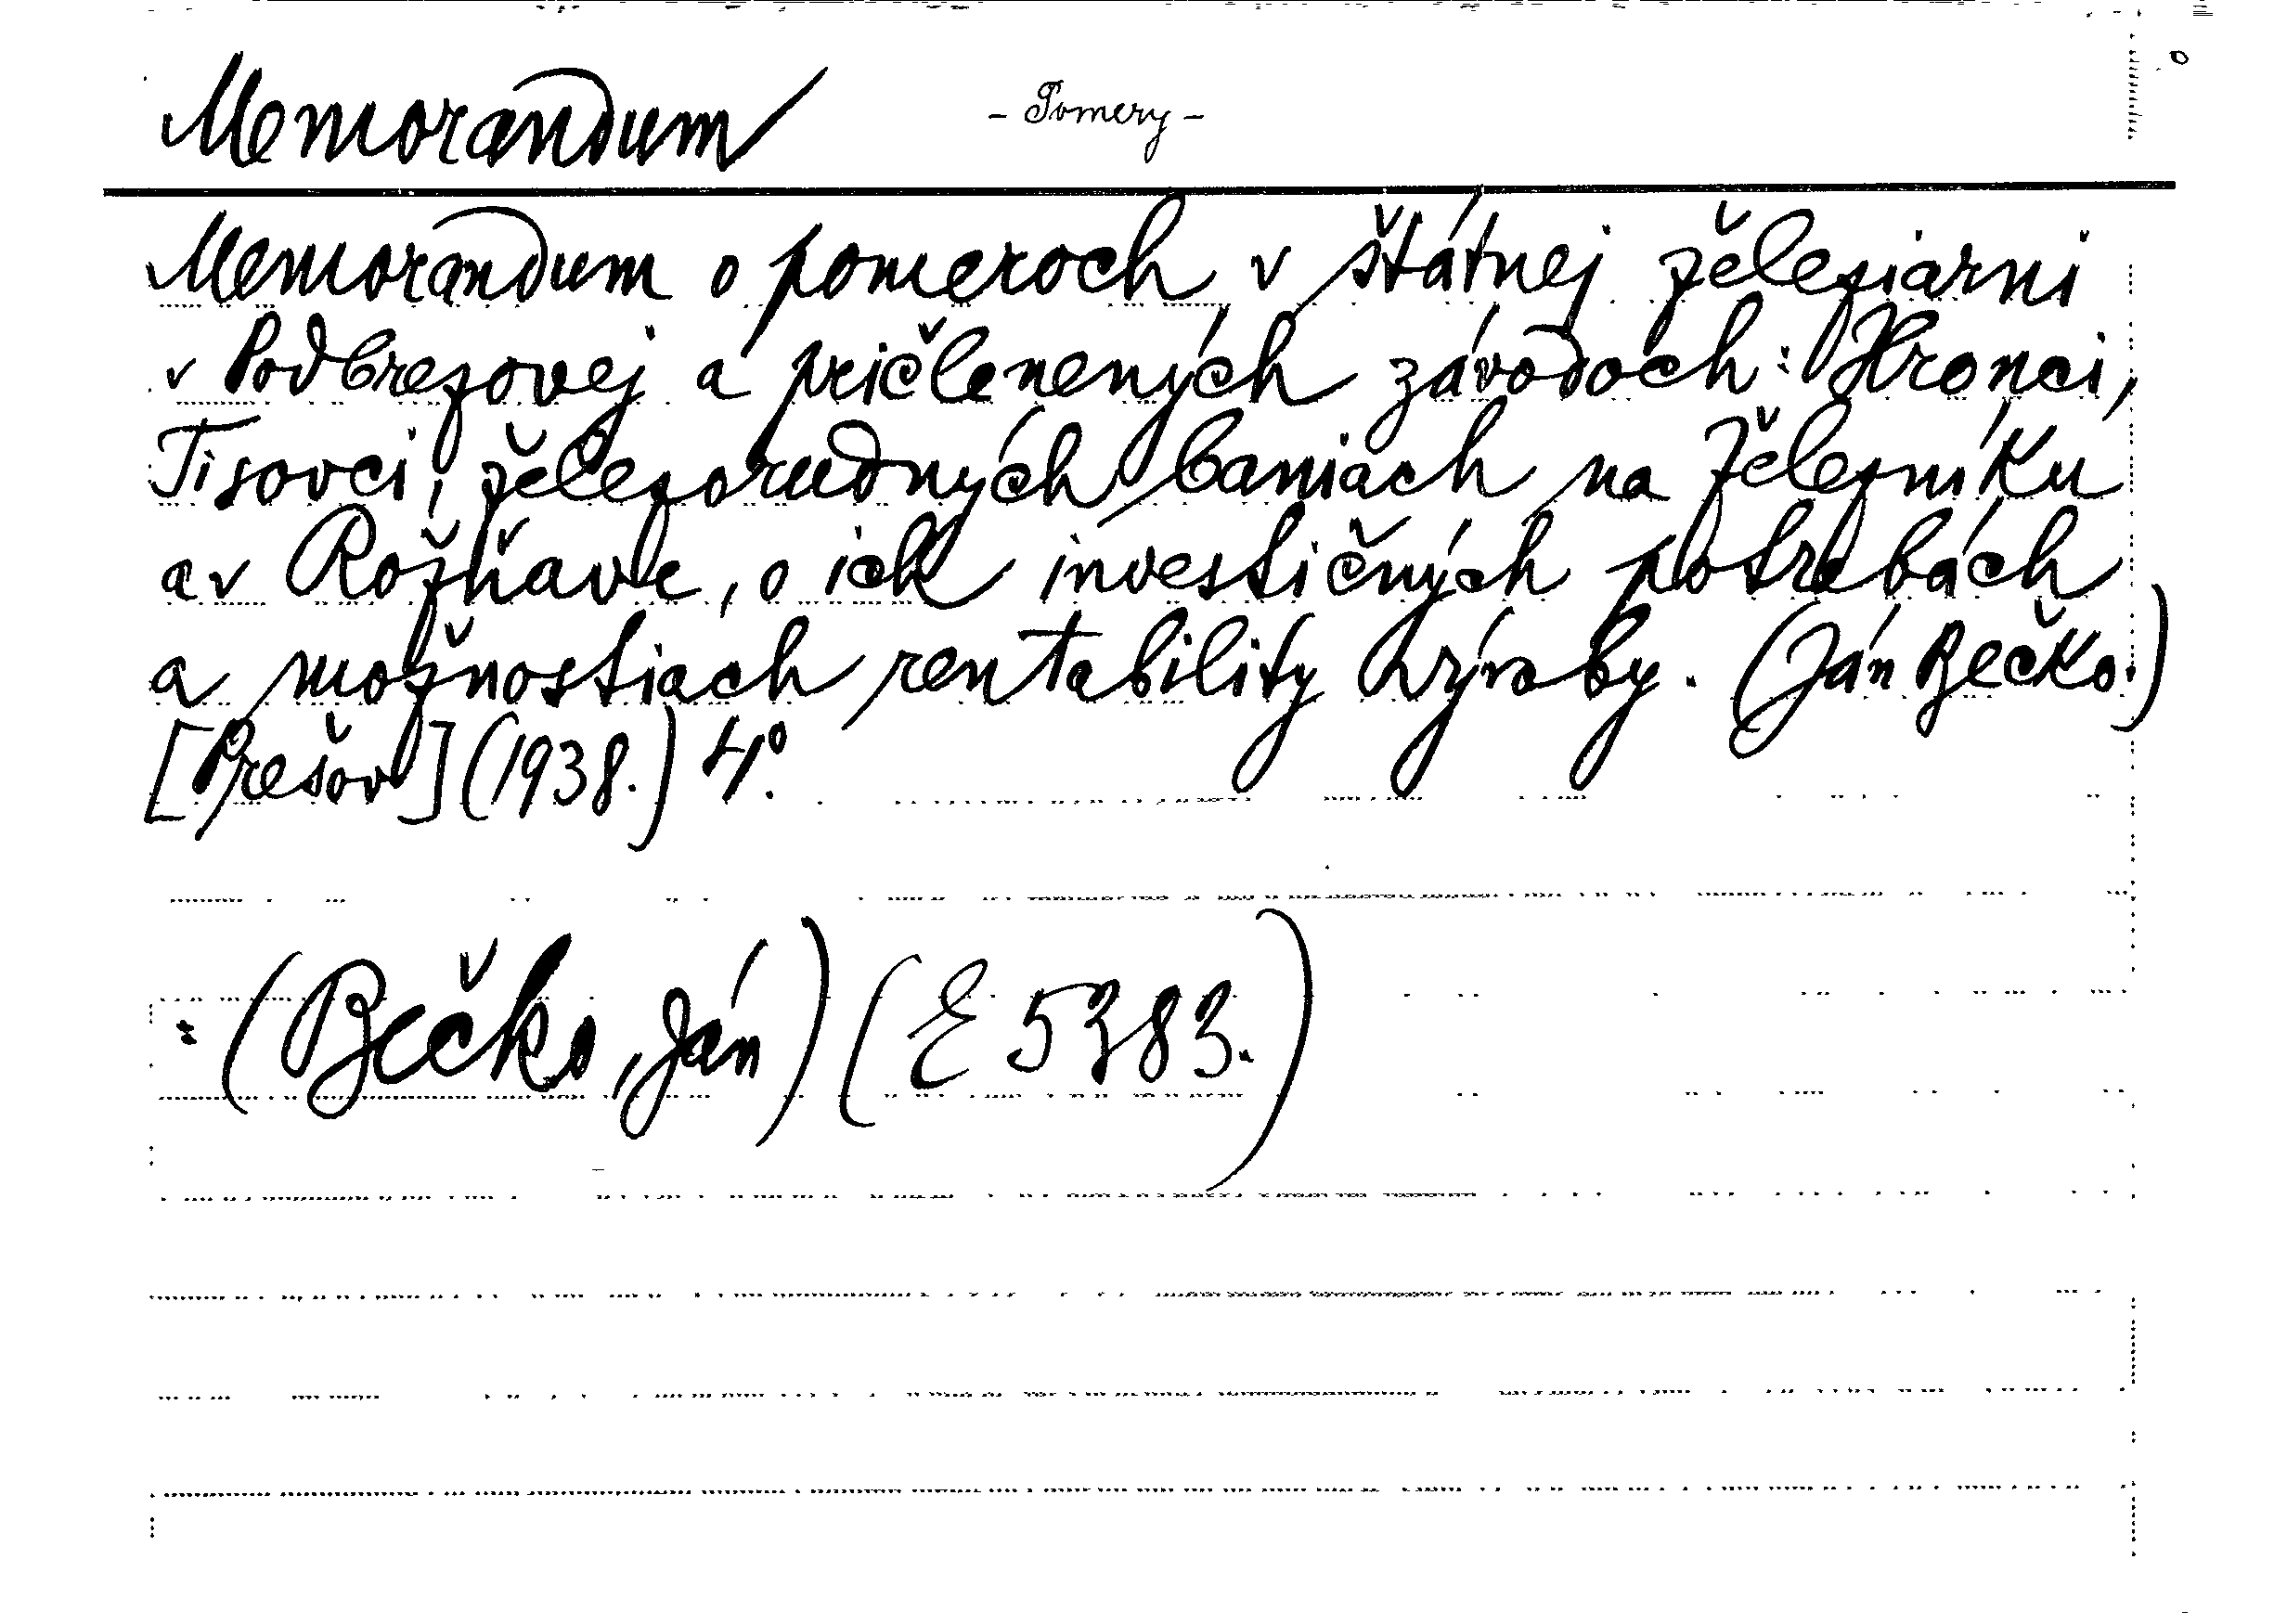 Memorandum - Pomery -
Memorandum o pomeroch v štátnej železiarni
v Podbrezovej a pričlenených závodoch: Hronci,
Tisovci, železorudných baniach na Železníku
a v Rožňave, o ich investičných potrebách
a možnostiach rentability výroby. (Ján Bečko.)
[Prešov] (1938.) 4°.
(Bečko, Ján) (E 5383.)